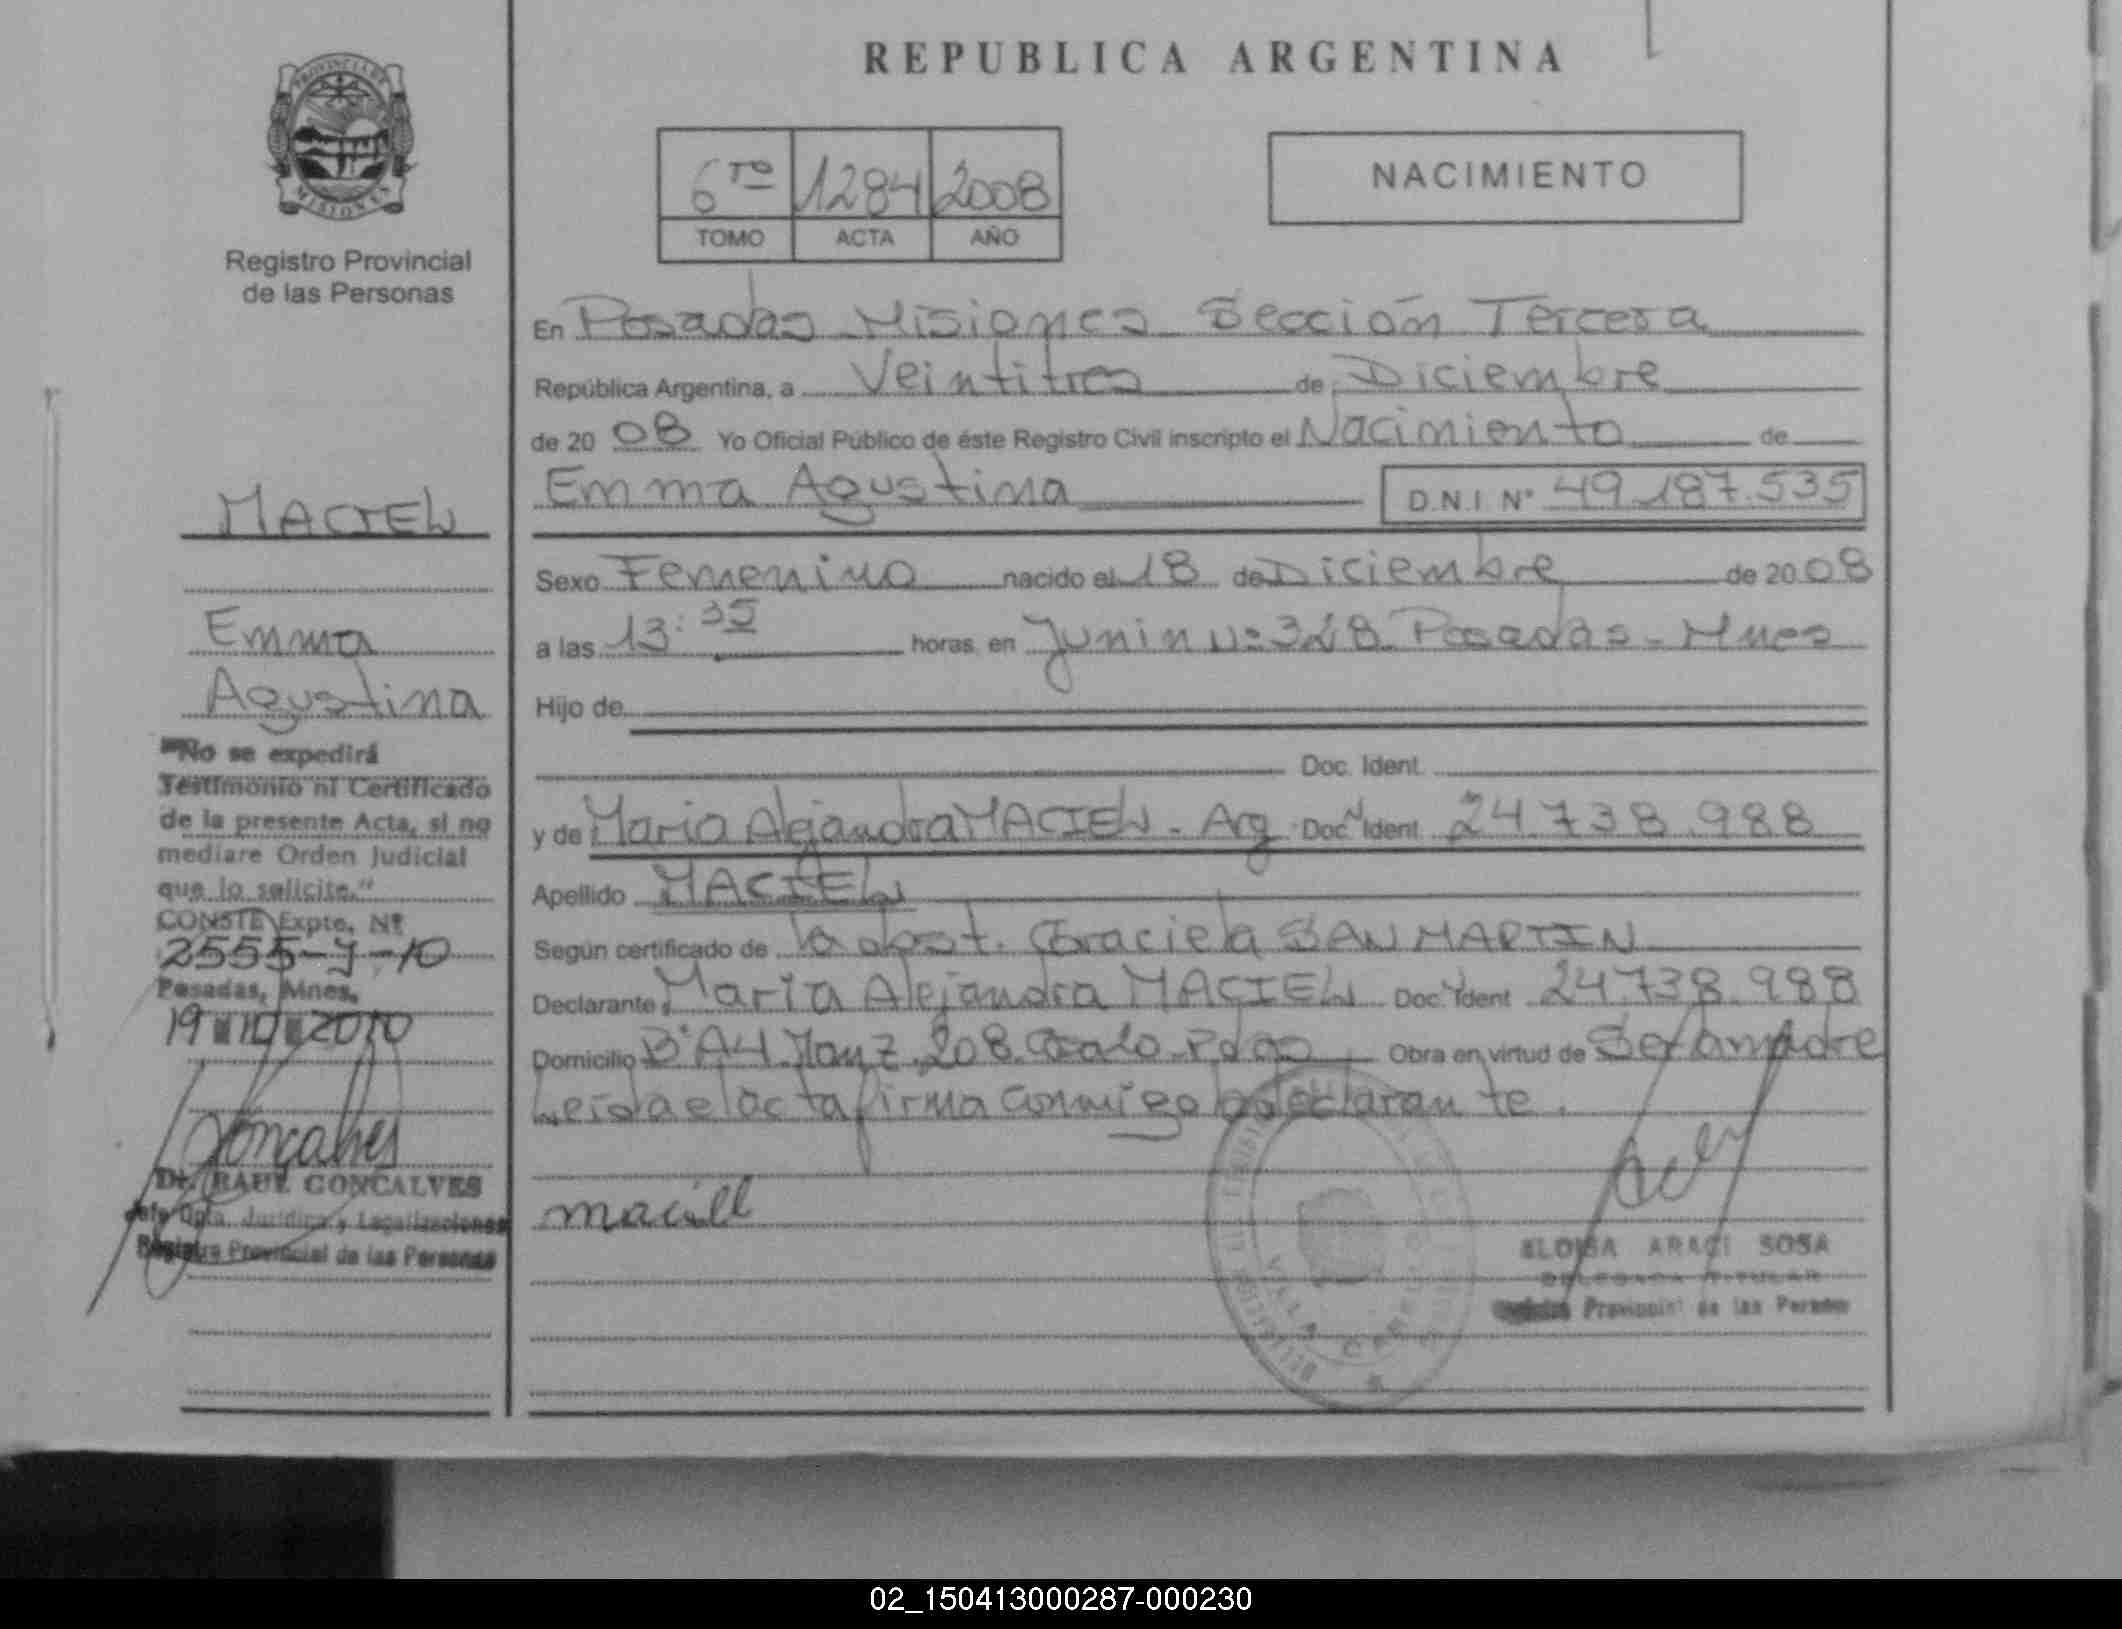 REPUBLICA ARGENTINA
PROVINCIA DE
MISIONES
Registro Provincial
de las Personas
6to 1284 2008
TOMO ACTA AÑO
NACIMIENTO
En Posadas Misiones Sección Tercera
República Argentina, a Veintitres de Diciembre
de 20 08 Yo Oficial Público de éste Registro Civil inscripto el Nacimiento de
Emma Agustina D.N.I. N° 49.187.535
Sexo Femenino nacido el 18 de Diciembre de 20 08
a las 13:35 horas, en Junin N: 328 Posadas - Mnes
Hijo de
Doc. Ident.
y de Maria Alejandra MACIEL - Arg Doc. Ident. 24.738.988
Apellido MACIEL
Según certificado de la obst. Graciela SAN MARTIN
Declarante Maria Alejandra MACIEL Doc. Ident. 24.738.988
Domicilio B° A4 Manz. 208 Pdas Obra en virtud de Ser la madre
Leida el acta firma conmigo la declarante.
maciel
ELOISA ARACI SOSA
DELEGADA TITULAR
Registro Provincial de las Personas
VILLA CABELLO
MACIEL
Emma
Agustina
"No se expedirá
Testimonio ni Certificado
de la presente Acta, si no
mediare Orden Judicial
que lo solicite."
CONSTE Expte. Nº
2555-J-10
Posadas, Mnes.
19 10 2010
Goncalves
Dr. RAUL GONCALVES
Jefe Dpto. Jurídico y Legalizaciones
Registro Provincial de las Personas
02_150413000287-000230